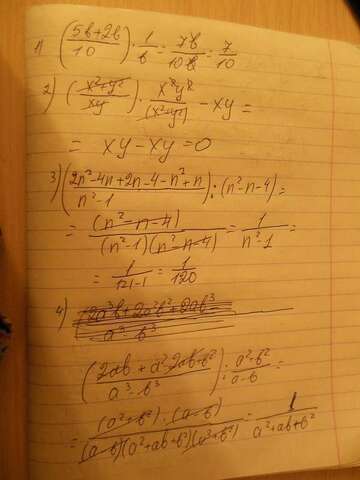 1) ((5b+2b)/10) · 1/b = 7b/10b = 7/10
2) ((x²+y²)/xy) · x²y²/(x²+y²) - xy =
= xy - xy = 0
3) ((2n²-4n+2n-4-n²+n)/(n²-1)) : (n²-n-4) =
= (n²-n-4)/((n²-1)(n²-n-4)) = 1/(n²-1) =
= 1/(121-1) = 1/120
4) (2a³b+2a²b²+2ab³)/(a³-b³)
((2ab+a²-2ab+b²)/(a³-b³)) : (a²+b²)/(a-b) =
= ((a²+b²)·(a-b))/((a-b)(a²+ab+b²)(a²+b²)) = 1/(a²+ab+b²)